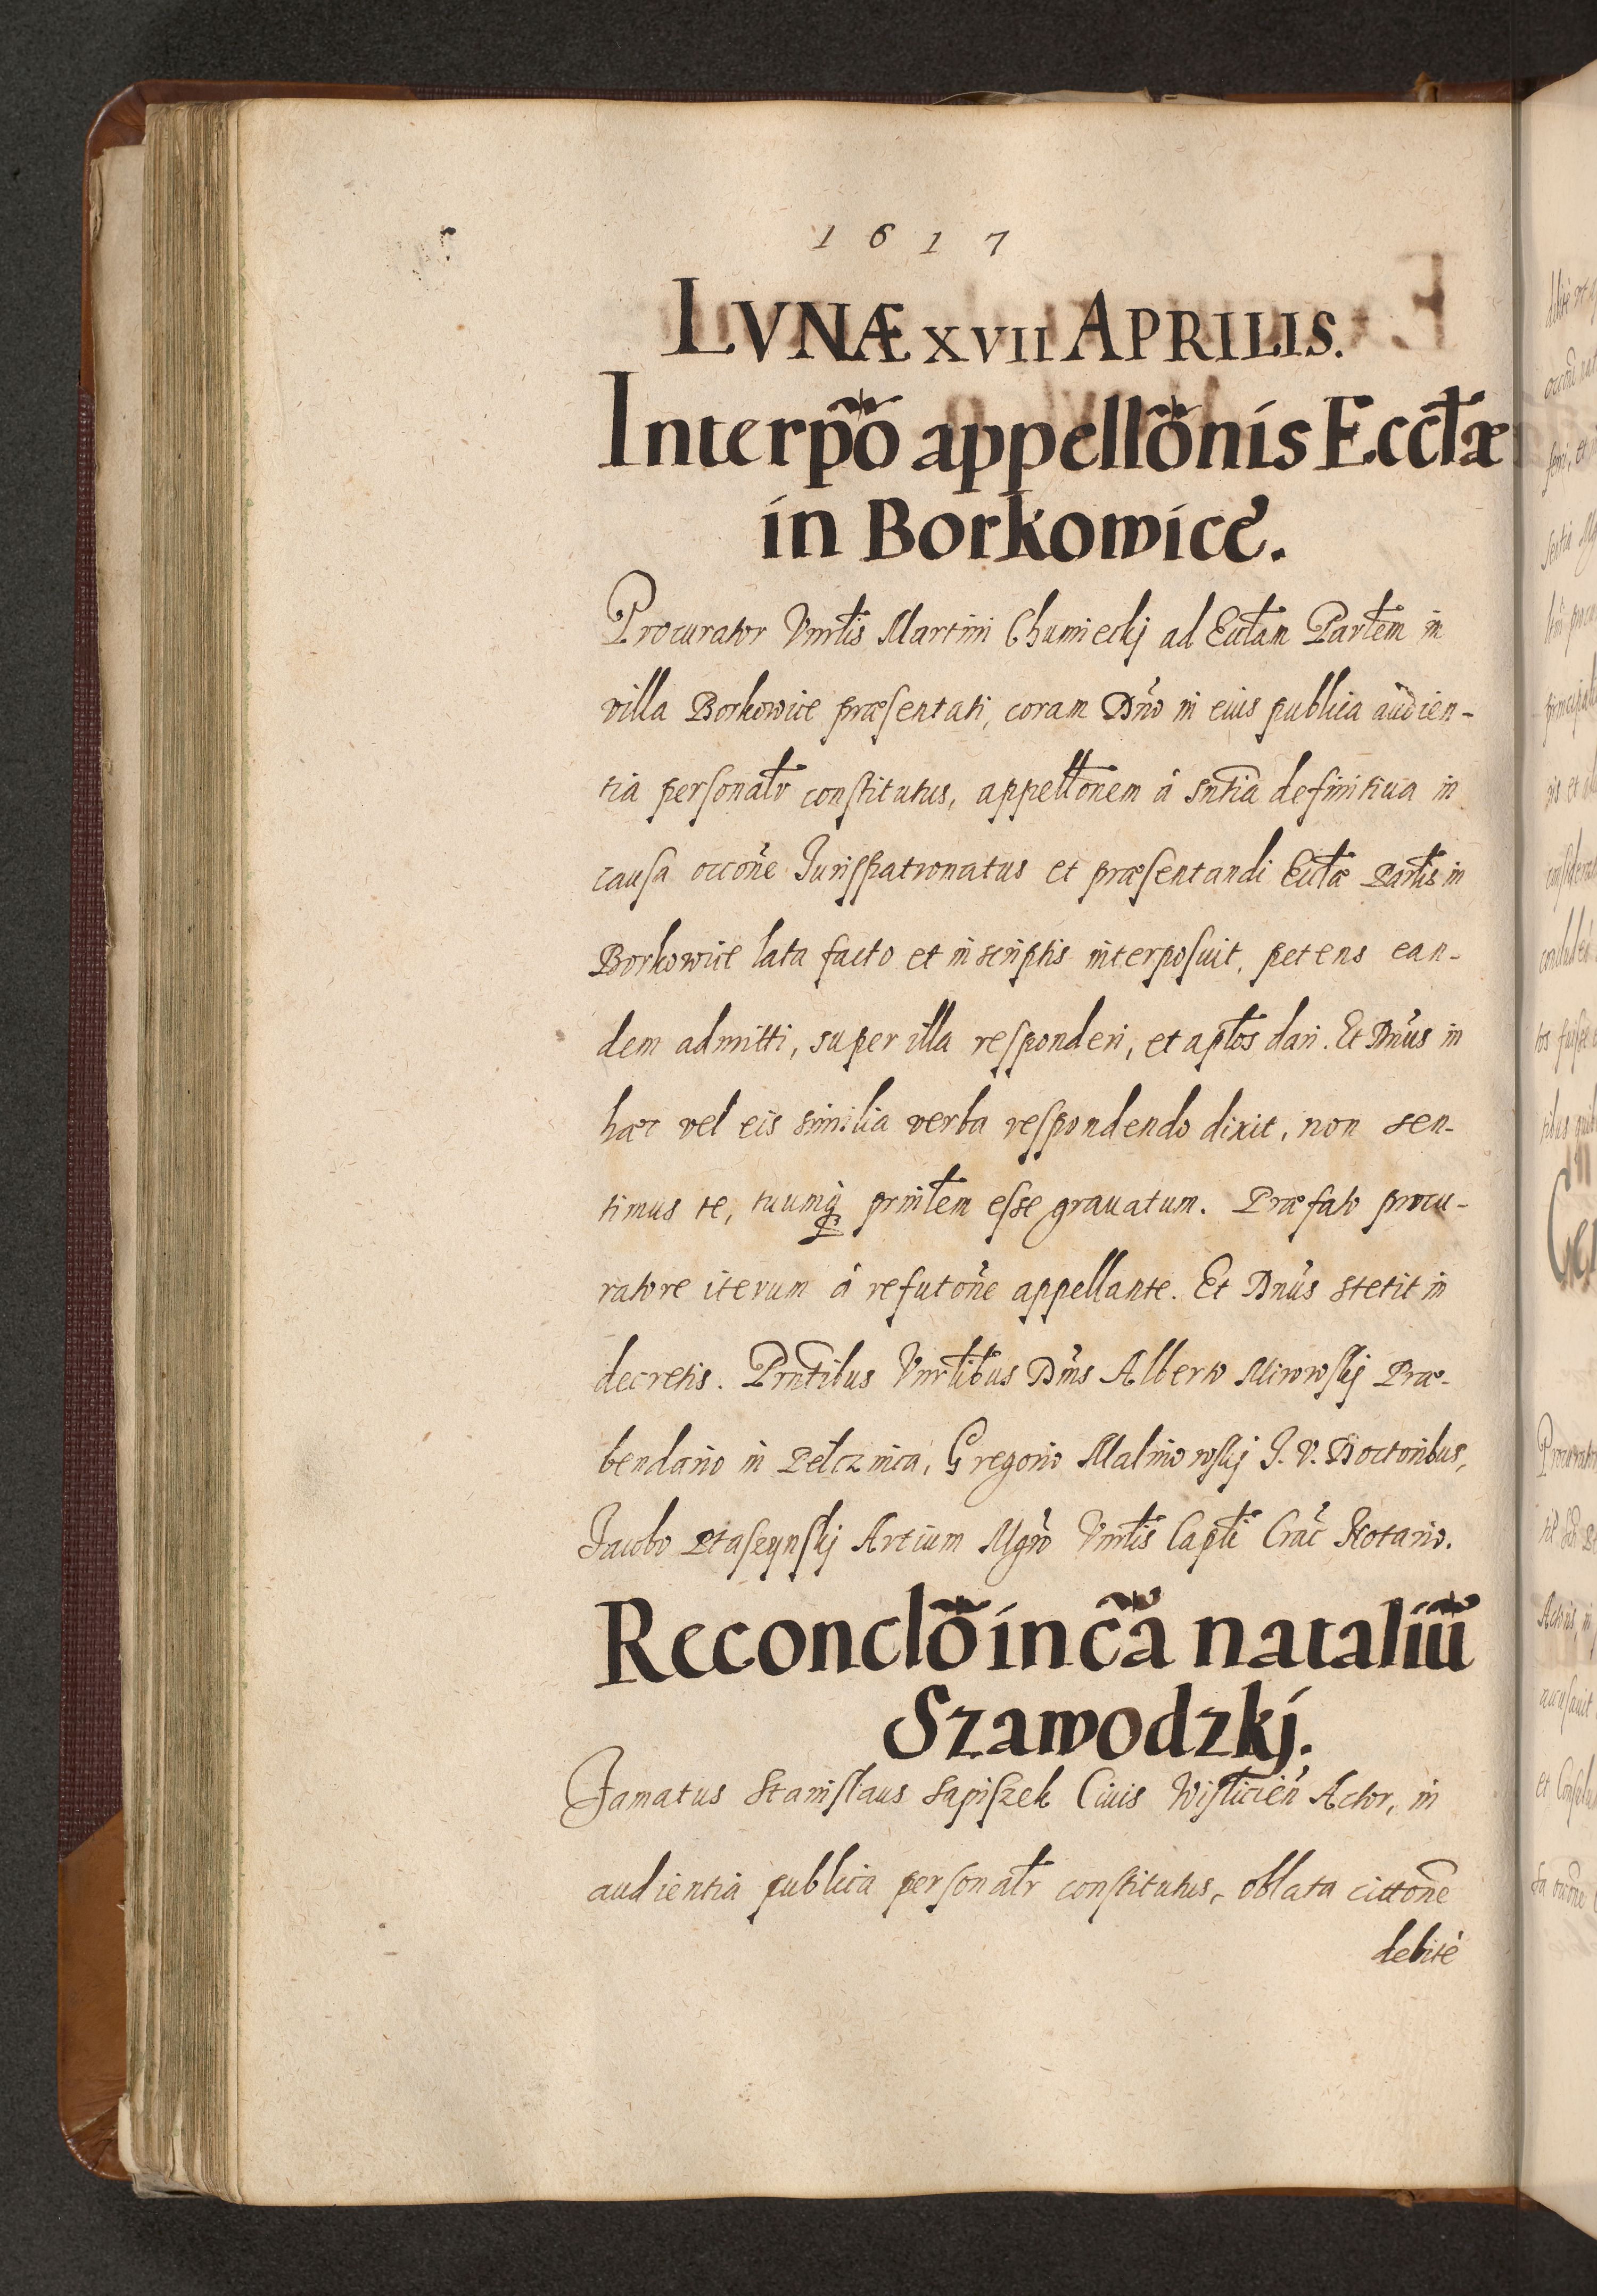 1 6 1 7
LVNÆ XVII APRILIS.
Interpõ appellõnis Eccłæ
in Borkowicẽ.
Procurator Vnrłis Martini Chumieckj ad Eccłam Parłem in
villa Borkowice præsentati, coram Dño in eius publica audien-
tia personałr constitutus, appełłonem á sñtia definitiua in
causa occoñe Jurispatronatus et præsentandi Eccłæ Parłis in
Borkowice lata facto et in scriptis interposuit, petens ean-
dem admitti, super illa responderi, et apłos dari. Et Dñus in
hæc vel eis similia verba respondendo dixit, non sen-
timus te, tuumq̃ prińłem esse grauatum. Præfato procu-
ratore iterum á refutoñe appellante. Et Dñus stetit in
decretis. Prñtibus Vnrłibus Dñis Alberto Mirowskj Præ-
bendario in Pełcznica, Gregorio Malinowskj J. V. Doctoribus,
Jacobo Ptaszynskj Artium Mgr̃o Vnrłis Capłi Crac̃ Notario.
Reconclõ in cãa nataliũ
Szawodzkj.
Famatus Stanislaus Sapiszek Ciuis Wislicieñ Actor, in
audientia publica personałr constitutus, oblata cittoñe
debité